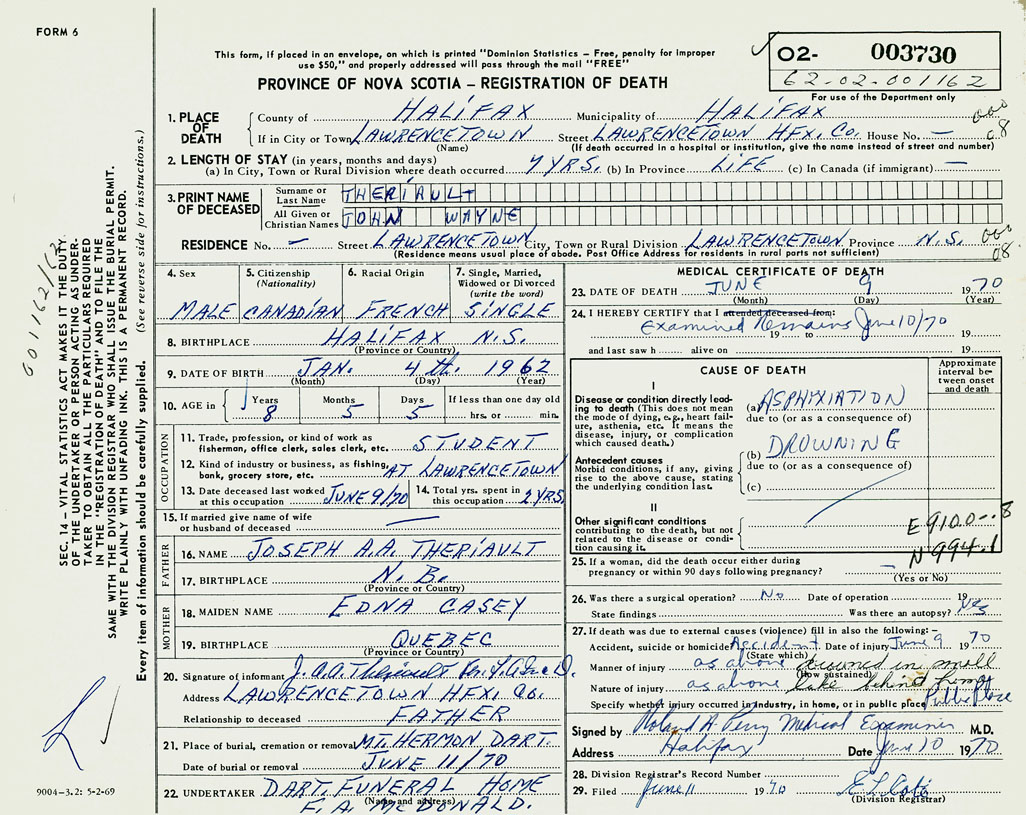 FORM 6
This form, if placed in an envelope, on which is printed "Dominion Statistics – Free, penalty for improper
use $50," and properly addressed will pass through the mail "FREE"
PROVINCE OF NOVA SCOTIA – REGISTRATION OF DEATH
O2- 003730
62-02-001162
For use of the Department only
1. PLACE OF DEATH
County of HALIFAX Municipality of HALIFAX
If in City or Town LAWRENCETOWN Street LAWRENCETOWN HFX. CO. House No. —
(Name) (If death occurred in a hospital or institution, give the name instead of street and number)
000
08
2. LENGTH OF STAY (in years, months and days)
(a) In City, Town or Rural Division where death occurred 7 YRS. (b) In Province LIFE (c) In Canada (if immigrant) —
3. PRINT NAME OF DECEASED
Surname or Last Name THERIAULT
All Given or Christian Names JOHN WAYNE
RESIDENCE No. — Street LAWRENCETOWN City, Town or Rural Division LAWRENCETOWN Province N.S.
(Residence means usual place of abode. Post Office Address for residents in rural parts not sufficient)
000
08
4. Sex
MALE
5. Citizenship
(Nationality)
CANADIAN
6. Racial Origin
FRENCH
7. Single, Married,
Widowed or Divorced
(write the word)
SINGLE
8. BIRTHPLACE HALIFAX N.S.
(Province or Country)
9. DATE OF BIRTH JAN. 4th. 1962
(Month) (Day) (Year)
10. AGE in
Years Months Days If less than one day old
8 5 5 hrs. or min.
OCCUPATION
11. Trade, profession, or kind of work as
fisherman, office clerk, sales clerk, etc. STUDENT
12. Kind of industry or business, as fishing,
bank, grocery store, etc. AT LAWRENCETOWN
13. Date deceased last worked
at this occupation JUNE 9/70
14. Total yrs. spent in
this occupation 2 YRS
15. If married give name of wife
or husband of deceased —
FATHER
16. NAME JOSEPH A.A. THERIAULT
17. BIRTHPLACE N.B.
(Province or Country)
MOTHER
18. MAIDEN NAME EDNA CASEY
19. BIRTHPLACE QUEBEC
(Province or Country)
20. Signature of informant J.A.A. Theriault
Address LAWRENCETOWN HFX. CO.
Relationship to deceased FATHER
21. Place of burial, cremation or removal MT. HERMON DART.
Date of burial or removal JUNE 11/70
22. UNDERTAKER DART. FUNERAL HOME
(Name and address)
F. A. McDONALD.
MEDICAL CERTIFICATE OF DEATH
23. DATE OF DEATH JUNE 9 1970
(Month) (Day) (Year)
24. I HEREBY CERTIFY that I attended deceased from:
Examined Remains June 10/70
19 to 19
and last saw h alive on 19
CAUSE OF DEATH
Approximate interval between onset and death
I
Disease or condition directly leading to death (This does not mean the mode of dying, e.g., heart failure, asthenia, etc. It means the disease, injury, or complication which caused death.)
(a) ASPHYXIATION
due to (or as a consequence of)
Antecedent causes
Morbid conditions, if any, giving rise to the above cause, stating the underlying condition last.
(b) DROWNING
due to (or as a consequence of)
(c)
II
Other significant conditions
contributing to the death, but not related to the disease or condition causing it.
E 910.0 - 8
N 994.1
25. If a woman, did the death occur either during
pregnancy or within 90 days following pregnancy? —
(Yes or No)
26. Was there a surgical operation? No Date of operation 19
State findings Was there an autopsy? Yes
27. If death was due to external causes (violence) fill in also the following:–
Accident, suicide or homicide Accident Date of injury June 9 1970
(State which)
Manner of injury as above drowned in small
(How sustained)
Nature of injury as above lake behind
Specify whether injury occurred in industry, in home, or in public place Public Place
Signed by Roland A. Perry Medical Examiner M.D.
Address Halifax Date June 10 1970
28. Division Registrar's Record Number
29. Filed June 11 1970
(Division Registrar)
SEC. 14 – VITAL STATISTICS ACT MAKES IT THE DUTY
OF THE UNDERTAKER OR PERSON ACTING AS UNDER-
TAKER TO OBTAIN ALL THE PARTICULARS REQUIRED
IN THE "REGISTRATION OF DEATH" AND TO FILE THE
SAME WITH THE DIVISION REGISTRAR WHO SHALL ISSUE THE BURIAL PERMIT.
WRITE PLAINLY WITH UNFADING INK. THIS IS A PERMANENT RECORD.
Every item of information should be carefully supplied. (See reverse side for instructions.)
001162/62
9004-3.2: 5-2-69